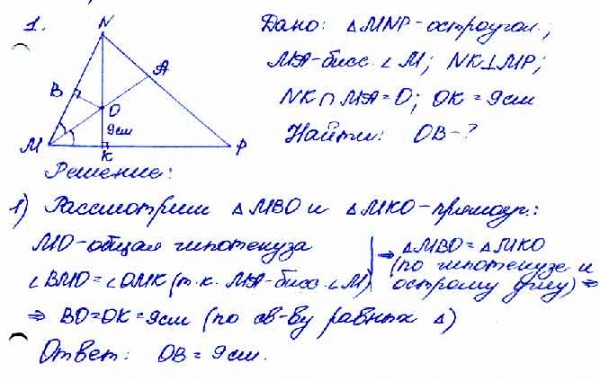 1.
N
A
B
O
9см
M
K
P
Дано: △MNP-остроугол.;
MA-бисс. ∠M; NK⊥MP;
NK∩MA=O; OK=9см
Найти: OB-?
Решение:
1) Рассмотрим △MBO и △MKO-прямоуг.:
MO-общая гипотенуза
∠BMO=∠OMK (т.к. MA-бисс. ∠M) | ⇒ △MBO=△MKO
(по гипотенузе и
острому углу) ⇒
⇒ BO=OK=9см (по св-ву равных △)
Ответ: OB=9см.